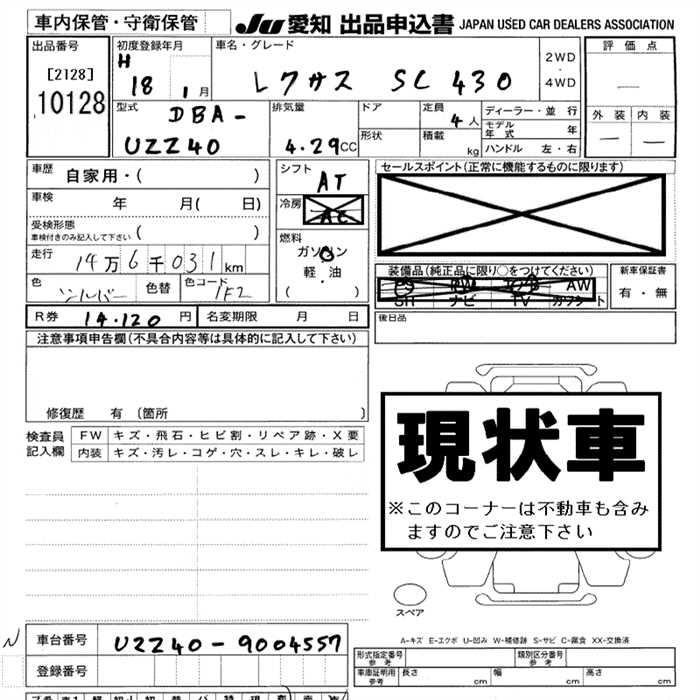 車内保管・守衛保管 JU 愛知 出品申込書 JAPAN USED CAR DEALERS ASSOCIATION
出品番号 初度登録年月 車名・グレード 2WD・4WD 評価点
[2128] H 18 1月 レクサス SC 430
10128 型式 DBA- 排気量 ドア 定員 4人 ディーラー・並行 外装 内装
モデル年式 年
UZZ40 4.29CC 形状 積載 kg ハンドル 左・右
車歴 自家用・( ) シフト AT セールスポイント(正常に機能するものに限ります)
車検 年 月( 日) 冷房 AC
受検形態 ( )
車検付きのみ記入して下さい
燃料 ガソリン
走行 14万6千031km 軽・油 装備品(純正品に限り○をつけてください) 新車保証書
色 シルバー 色替 色コード 1F2 ( ) PS PW AW 有・無
SR ナビ TV カワシート
R券 14.120円 名変期限 月 日 後日品
注意事項申告欄(不具合内容等は具体的に記入して下さい)
修復歴 有 〔箇所 〕
検査員記入欄 FW キズ・飛石・ヒビ割・リペア跡・X要
内装 キズ・汚レ・コゲ・穴・スレ・キレ・破レ
現状車
※このコーナーは不動車も含み
ますのでご注意下さい
スペア
A-キズ E-エクボ U-凹み W-補修跡 S-サビ C-腐食 XX-交換済
N 車台番号 UZZ40-9004557
形式指定番号 参考 類別区分番号 参考
登録番号 車庫証明用 参考 長さ cm 幅 cm 高さ cm